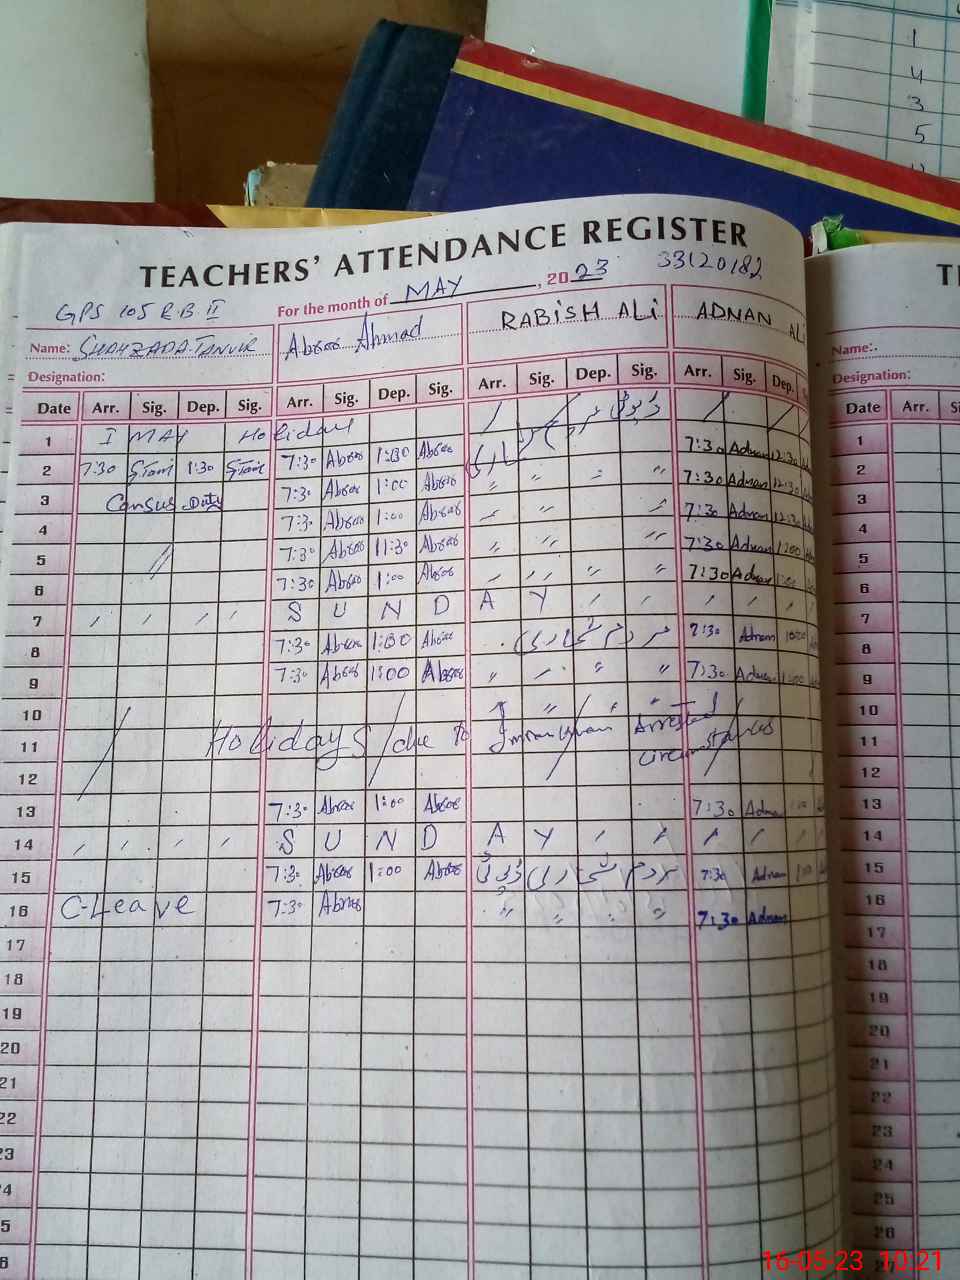 1
4
3
5
TEACHERS' ATTENDANCE REGISTER
33120182
GPS 105 R.B II For the month of MAY, 2023
Name: SHAHZADA TANVIR Absar Ahmad RABISH ALi ADNAN ALi
Name:
Designation:
Designation:
Date Arr. Sig. Dep. Sig. Arr. Sig. Dep. Sig. Arr. Sig. Dep. Sig. Arr. Sig. Dep.
Date Arr.
1 I MAY Holiday
2 7:30 1:30 7:30 Absar 1:00 Absar 7:30 Adnan 12:30
3 Census Duty 7:30 Absar 1:00 Absar 〃 〃 〃 〃 7:30 Adnan 12:30
4 7:30 Absar 1:00 Absar 7:30 Adnan 12:30
5 〃 7:30 Absar 11:30 Absar 7:30 Adnan 1:00
6 7:30 Absar 1:00 Absar 7:30 Adnan 1:00
7 SUNDAY
8 7:30 Absar 1:00 Absar مردم شماری 7:30 Adnan
9 7:30 Absar 1:00 Absar 7:30 Adnan
10
11 Holidays due to Imran Khan Arrested
circumstances
12
13 7:30 Absar 1:00 Absar 7:30 Adnan 1:00
14 SUNDAY
15 7:30 Absar 1:00 Absar ڈیوٹی مردم شماری 7:30 Adnan 1:00
16 C-Leave 7:30 Absar 〃 〃 〃 〃 7:30 Adnan
17
18
19
20
21
22
23
24
25
26
1
2
3
4
5
6
7
8
9
10
11
12
13
14
15
16
17
18
19
20
21
22
23
24
25
26
16-05-23 10:21